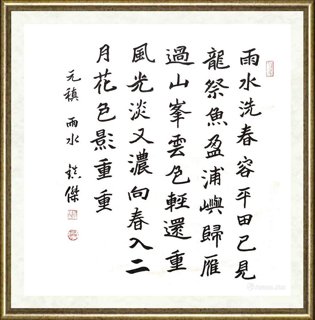 雨水洗春容平田已見
龍祭魚盈浦嶼歸雁
過山峯雲色輕還重
風光淡又濃向春入二
月花色影重重
元稹 雨水 鎂傑